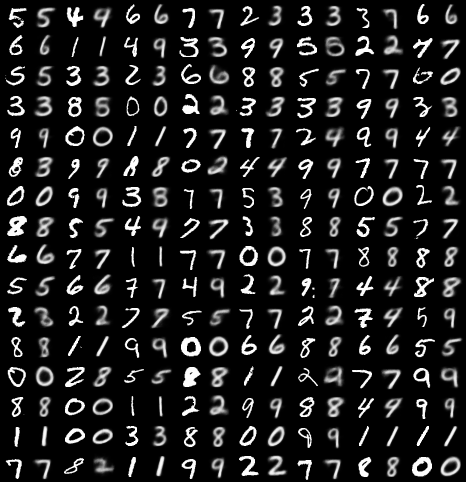 5 5 4 9 6 6 7 7 2 3 3 3 3 7 6 6
6 6 1 1 4 9 3 3 9 9 5 5 2 2 7 7
5 5 3 3 2 3 6 6 8 8 5 5 7 7 0 0
3 3 8 5 0 0 2 2 3 3 3 3 9 9 3 3
9 9 0 0 1 1 7 7 7 7 2 4 9 9 4 4
8 3 9 9 8 8 0 2 4 4 9 9 7 7 7 7
0 0 9 9 3 8 7 7 5 3 9 9 0 0 2 2
8 8 5 5 4 9 7 7 3 3 8 8 5 5 7 7
6 6 7 7 1 1 7 7 0 0 7 7 8 8 8 8
5 5 6 6 7 7 4 9 2 2 9 7 4 4 8 8
2 3 2 2 7 9 5 5 7 7 2 2 7 9 5 9
8 8 1 1 9 9 0 0 6 6 8 8 6 6 5 5
0 0 2 8 5 5 8 8 1 1 2 9 7 7 9 9
8 8 0 0 1 1 2 2 9 9 8 8 4 9 9 9
1 1 0 0 3 3 8 8 0 0 9 9 1 1 1 1
7 7 8 2 1 1 9 9 2 2 7 7 8 8 0 0